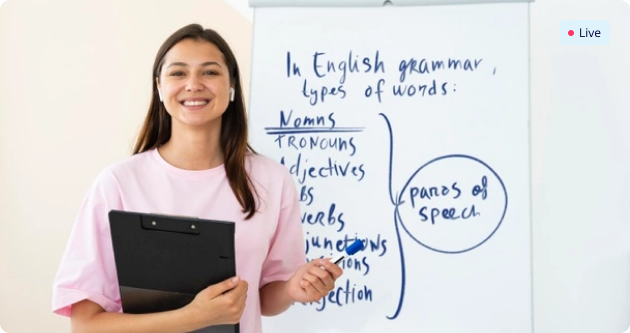 Live
In English grammar,
types of words:
Nomns
TRONOUNS
Adjectives
bs
verbs
junctions
sions
jection
paros of
speech